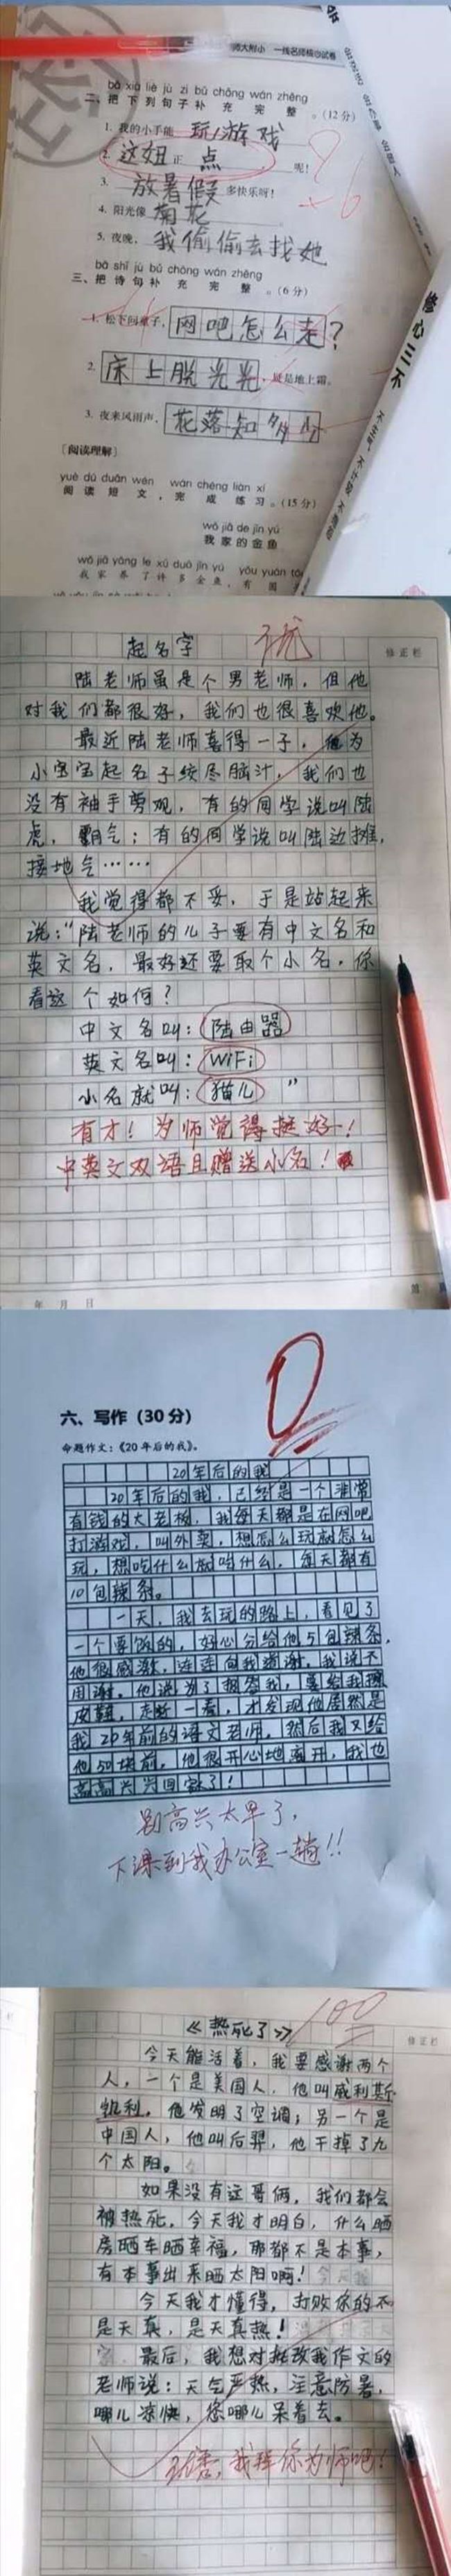 师大附小 一线名师核心试卷
bǎ xià liè jù zi bǔ chōng wán zhěng
二、把下列句子补充完整。(12分)
1. 我的小手能 玩游戏
2. 这妞 正 点 呢!
3. 放暑假 多快乐呀!
4. 阳光像 菊花
5. 夜晚, 我偷偷去找她
×6
bǎ shī jù bǔ chōng wán zhěng
三、把诗句补充完整。(6分)
1. 松下问童子, 网吧怎么走?
2. 床上脱光光, 疑是地上霜。
3. 夜来风雨声, 花落知多少
修心三不
[阅读理解]
yuè dú duǎn wén wán chéng liàn xí
阅读短文,完成练习。(15分)
wǒ jiā de jīn yú
我家的金鱼
wǒ jiā yǎng le xǔ duō jīn yú yǒu yuán
我家养了许多金鱼,有圆
起名字
优
修正栏
陆老师虽是个男老师,但他
对我们都很好,我们也很喜欢他。
最近陆老师喜得一子,他为
小宝宝起名子绞尽脑汁,我们也
没有袖手旁观,有的同学说叫陆
虎,霸气;有的同学说叫陆边摊,
接地气……
我觉得都不妥,于是站起来
说:“陆老师的儿子要有中文名和
英文名,最好还要取个小名,你
看这个如何?
中文名叫:陆由器
英文名叫:WiFi
小名就叫:猫儿”
有才!为师觉得挺好!
中英文双语且赠送小名!
年 月 日
0
六、写作(30分)
命题作文:《20年后的我》。
20年后的我
20年后的我,已经是一个非常
有钱的大老板,我每天都是在网吧
打游戏,叫外卖,想怎么玩就怎么
玩,想吃什么就吃什么,每天都有
10包辣条。
一天,我去玩的路上,看见了
一个要饭的,好心分给他5包辣条,
他很感激,连连向我道谢。我说不
用谢。他说为了报答我,要给我擦
皮鞋,走近一看,才发现他居然是
我20年前的语文老师,然后我又给
他50块前,他很开心地离开,我也
高高兴兴回家了!
别高兴太早了,
下课到我办公室一趟!!
《热死了》
100
修正栏
今天能活着,我要感谢两个
人,一个是美国人,他叫威利斯
凯利,他发明了空调;另一个是
中国人,他叫后羿,他干掉了九
个太阳。
如果没有这哥俩,我们都会
被热死,今天我才明白,什么晒
房晒车晒幸福,那都不是本事,
有本事出来晒太阳啊!
今天我才懂得,打败你的不
是天真,是天真热!
最后,我想对批改我作文的
老师说:天气严热,注意防暑,
哪儿凉快,您哪儿呆着去。
我拜你为师吧!